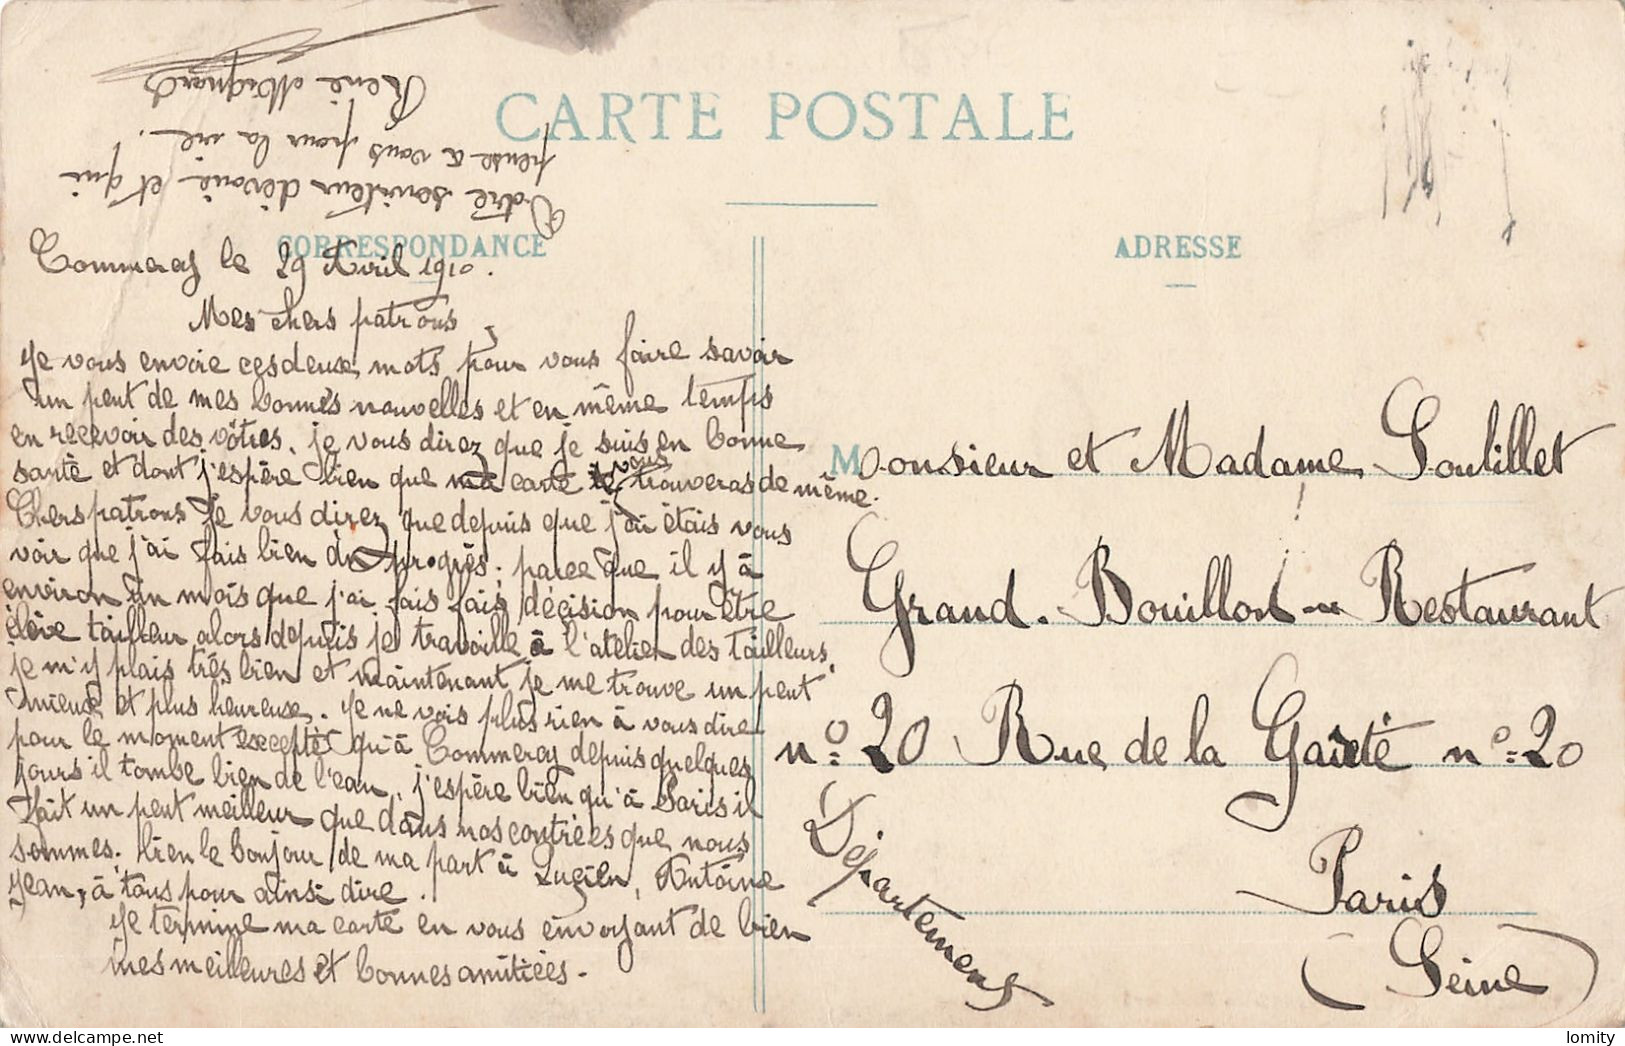 CARTE POSTALE
CORRESPONDANCE
ADRESSE
Commercy le 29 Avril 1910.
Mes chers patrons,
Je vous envoie ces deuse mots pour vous faire savoir
un peut de mes bonnes nouvelles et en même temps
en recevoir des vôtres. je vous direz que je suis en bonne
santé et dont j'espère bien que ma carte vous trouveras de même.
Chers patrons je vous direz que depuis que j'ai étais vous
voir que j'ai fais bien du progrès. parce que il y à
environ un mois que j'ai fais fais décision pour être
élève tailleur alors depuis je travaille à l'atelier des tailleurs,
je m'y plais très bien et maintenant je me trouve un peut
mieuse et plus heureuse. Je ne vois plus rien à vous dire
pour le moment excepté qu'à Commercy depuis quelques
jours il tombe bien de l'eau, j'espère bien qu'à Paris il
fait un peut meilleur que dans nos contrées que nous
sommes. bien le bonjour de ma part à Lucien, Antoine
Jean, à tous pour ainsi dire.
Je termine ma carte en vous envoyant de bien
mes meilleures et bonnes amitiées.
Votre serviteur dévoué et qui
pense a vous pour la vie.
René Mignard
Monsieur et Madame Soulillet
Grand. Bouillon - Restaurant
n° 20 Rue de la Gaieté n° 20
Paris
(Seine)
Département
lomity